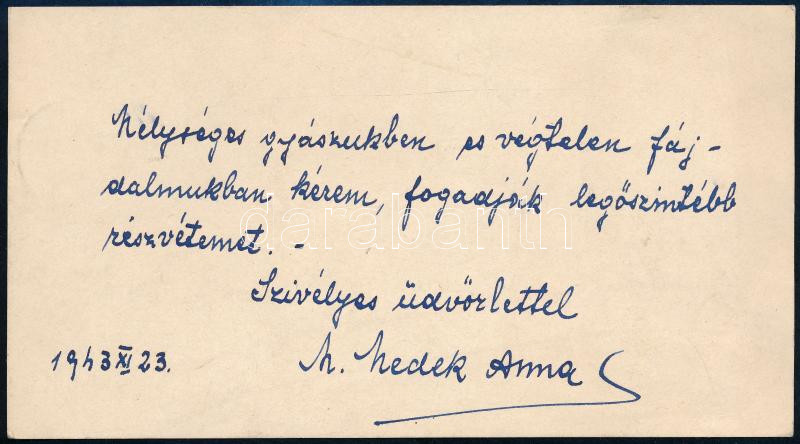 Mélységes gyászukben es végtelen fáj-
dalmukban kérem, fogadják legőszintébb
részvétemet. -
Szivélyes üdvözlettel
1943 XI 23.
M. Medek Anna
darabanth